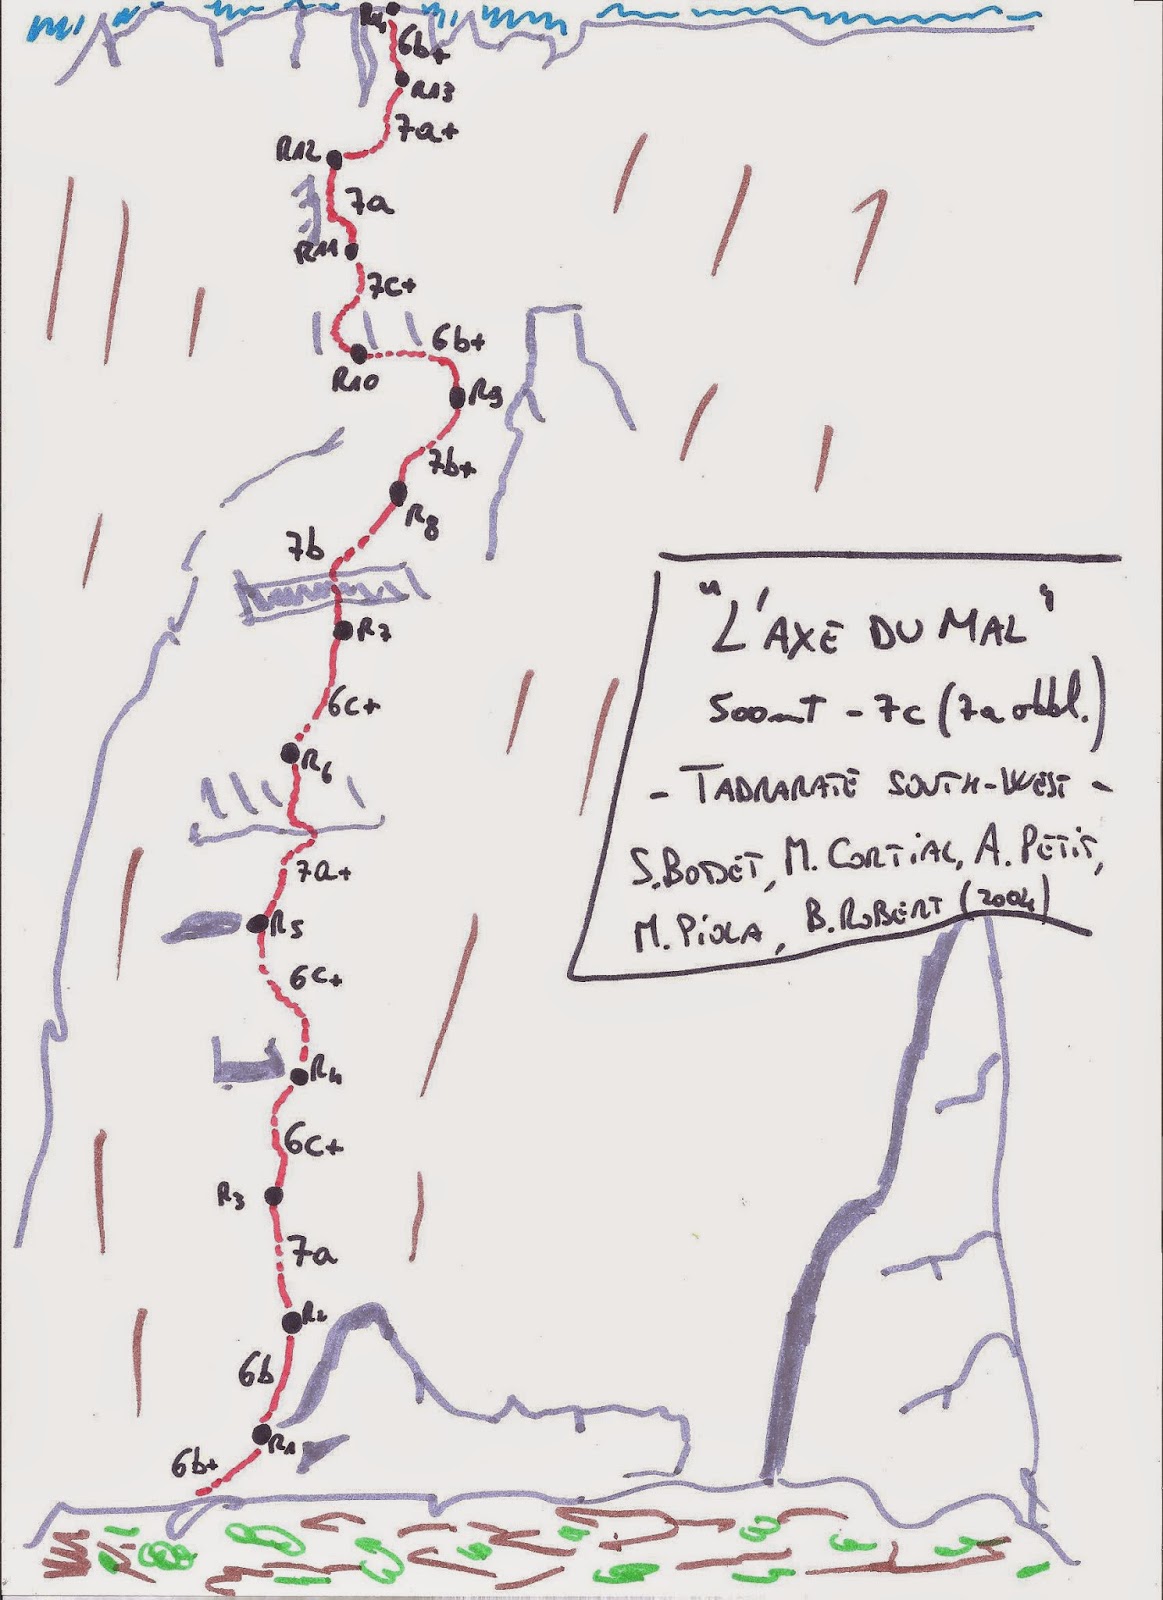 R14
6b+
R13
7a+
R12
7a
R11
7c+
6b+
R10
R9
7b+
R8
7b
R7
6c+
R6
7a+
R5
6c+
R4
6c+
R3
7a
R2
6b
R1
6b+
"L'AXE DU MAL"
500mT - 7c (7a obbl.)
- TADRARATE SOUTH-WEST -
S. BODET, M. CORTIAL, A. PETIT,
M. PIOLA, B. ROBERT (2004)